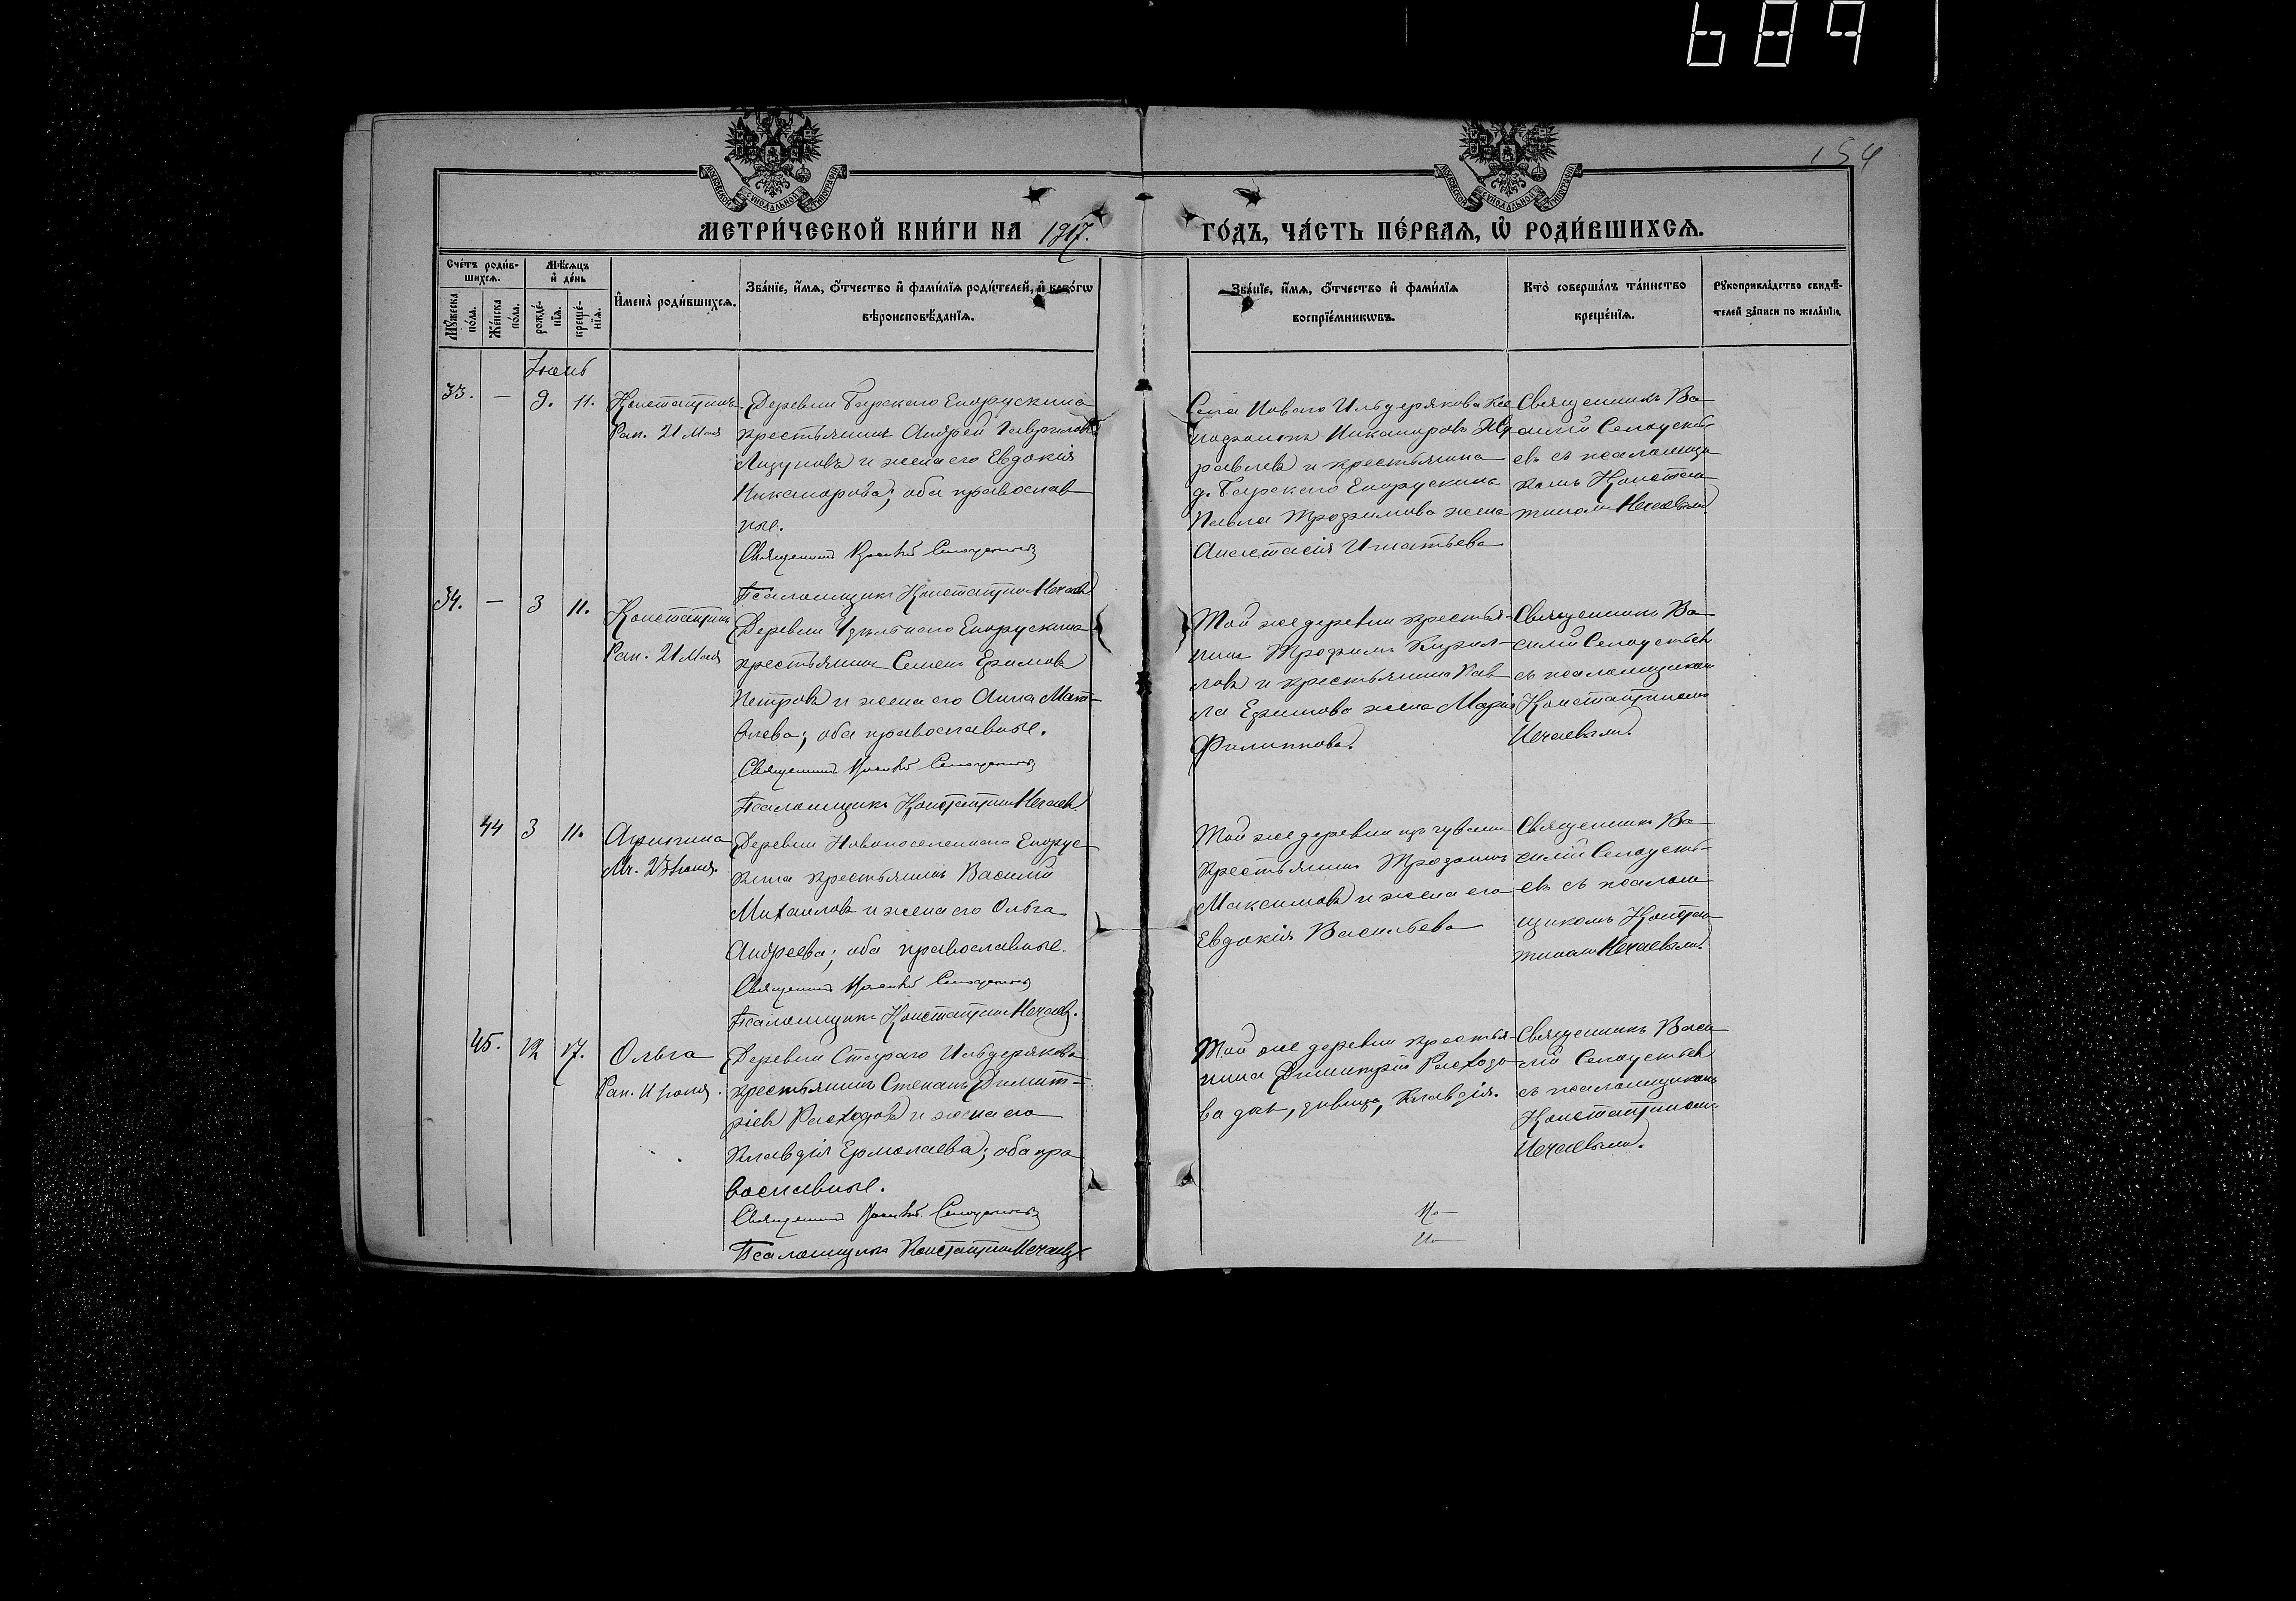 689
154
МЕТРИ́ЧЕСКОЙ КНИ́ГИ НА 1917.
ГО́ДЪ, ЧА́СТЬ ПЕ́РВАЯ, Ѡ҆ РОДИ́ВШИХСЯ.
Сче́тъ роди́в-
шихся.
Мѣ́сяцъ
и҆ де́нь
Мꙋ́жеска
по́ла.
Же́нска
по́ла.
рожде́-
нїя.
креще́-
нїя.
И҆мена̀ роди́вшихся.
Зва́нїе, и҆́мя, ѻ҆́тчество и҆ фами́лїя роди́телей, и҆ како́гѡ
вѣроисповѣ́данїя.
Зва́нїе, и҆́мя, ѻ҆́тчество и҆ фами́лїя
воспрїе́мникѡвъ.
Кто̀ соверша́лъ та́инство
креще́нїя.
Рꙋкоприкла́дство свидѣ́-
телей за́писи по жела́нїю.
Іюнь
33. — 9. 11.
Константинъ
Рап. 21 Мая
Деревни Барскаго Енорускина
крестьянинъ Андрей Гавриловъ
Лизуновъ и жена его Евдокія
Никанорова; оба православ
ные.
Священникъ Василій
Псаломщикъ Константинъ Нечаевъ
Села Новаго Ильдерякова
Никаноровъ Жу
равлевъ и крестьянина
д. Барскаго Енорускина
Павла Трофимова жена
Анастасія Игнатьева
Священникъ Ва
силій
евъ съ псаломщи
комъ Констан
тиномъ Нечаевымъ
34. — 3 11.
Константинъ
Рап. 21 Мая
Деревни Удѣльнаго Енорускина
крестьянинъ Семенъ Ефимовъ
Петровъ и жена его Анна Мат-
вѣева; оба православные.
Священникъ Василій
Псаломщикъ Константинъ Нечаевъ
Той же деревни крестья-
нинъ Трофимъ Кирил-
ловъ и крестьянина Пав
ла Ефимова жена Марія
Филиппова.
Священникъ Ва
силій
съ псаломщикомъ
Константиномъ
Нечаевымъ.
44 3 11.
Агрипина
Мч. 23 Іюня.
Деревни Новопоселеннаго Енорус
кина крестьянинъ Василій
Михаиловъ и жена его Ольга
Андреева; оба православные.
Священникъ Василій
Псаломщикъ Константинъ Нечаевъ.
Той же деревни изъ чувашъ
крестьянинъ
Максимовъ и жена его
Евдокія Васильева
Священникъ Ва
силій
евъ съ псалом
щикомъ Констан
тиномъ Нечаевымъ
45. 12 17.
Ольга
Рап. 11 Іюля.
Деревни Стараго Ильдерякова
крестьянинъ Степанъ Димит-
ріевъ Расходовъ и жена его
Клавдія Ермолаева; оба пра
вославные.
Священникъ Василій
Псаломщикъ Константинъ Нечаевъ
Той же деревни крестья-
нина Димитрій Расходо
ва дочь, дѣвица, Клавдія.
Священникъ Васи
лій
съ псаломщикомъ
Константиномъ
Нечаевымъ.